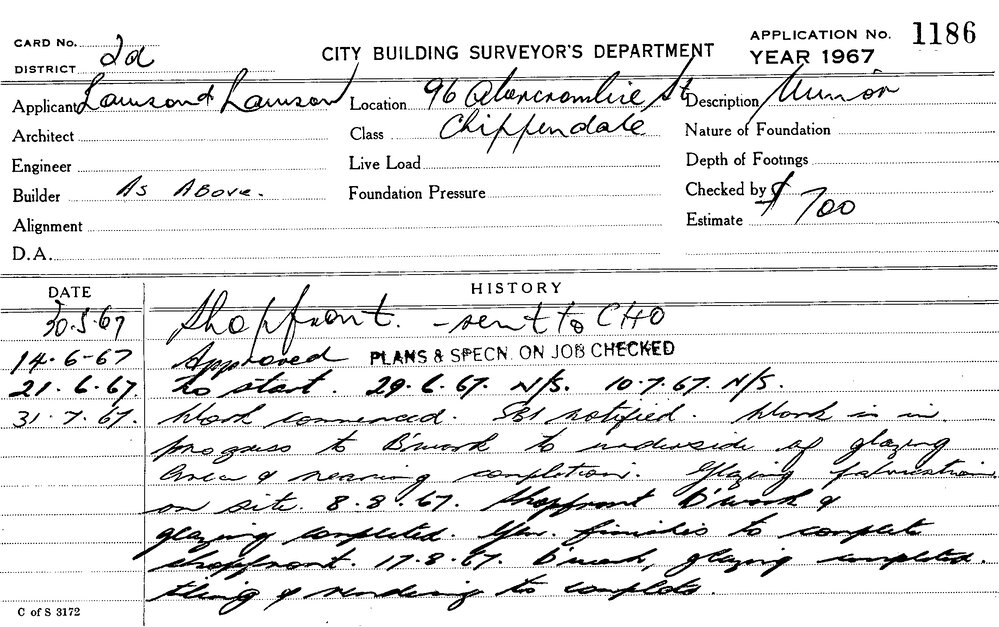 CARD No. 2d
DISTRICT
CITY BUILDING SURVEYOR'S DEPARTMENT
APPLICATION No. 1186
YEAR 1967
Applicant Lawson & Lawson
Location 96 Abercrombie St
Chippendale
Description Minor
Architect
Class
Nature of Foundation
Engineer
Live Load
Depth of Footings
Builder As Above.
Foundation Pressure
Checked by
Alignment
Estimate $700
D.A.
DATE
HISTORY
30.5.67 Shopfront. - sent to CHO
14-6-67 Approved PLANS & SPECN. ON JOB CHECKED
21.6.67. No start. 29.6.67. N/S. 10.7.67. N/S.
31.7.67. Work commenced. notified. Work is in
progress to B'work to underside of glazing
area & nearing completion. Glazing fabrication
on site. 8.8.67. Shopfront B'work &
glazing completed. finishes to complete
shopfront. 17.8.67. B'work, glazing completed.
tiling & rendering to complete.
C of S 3172